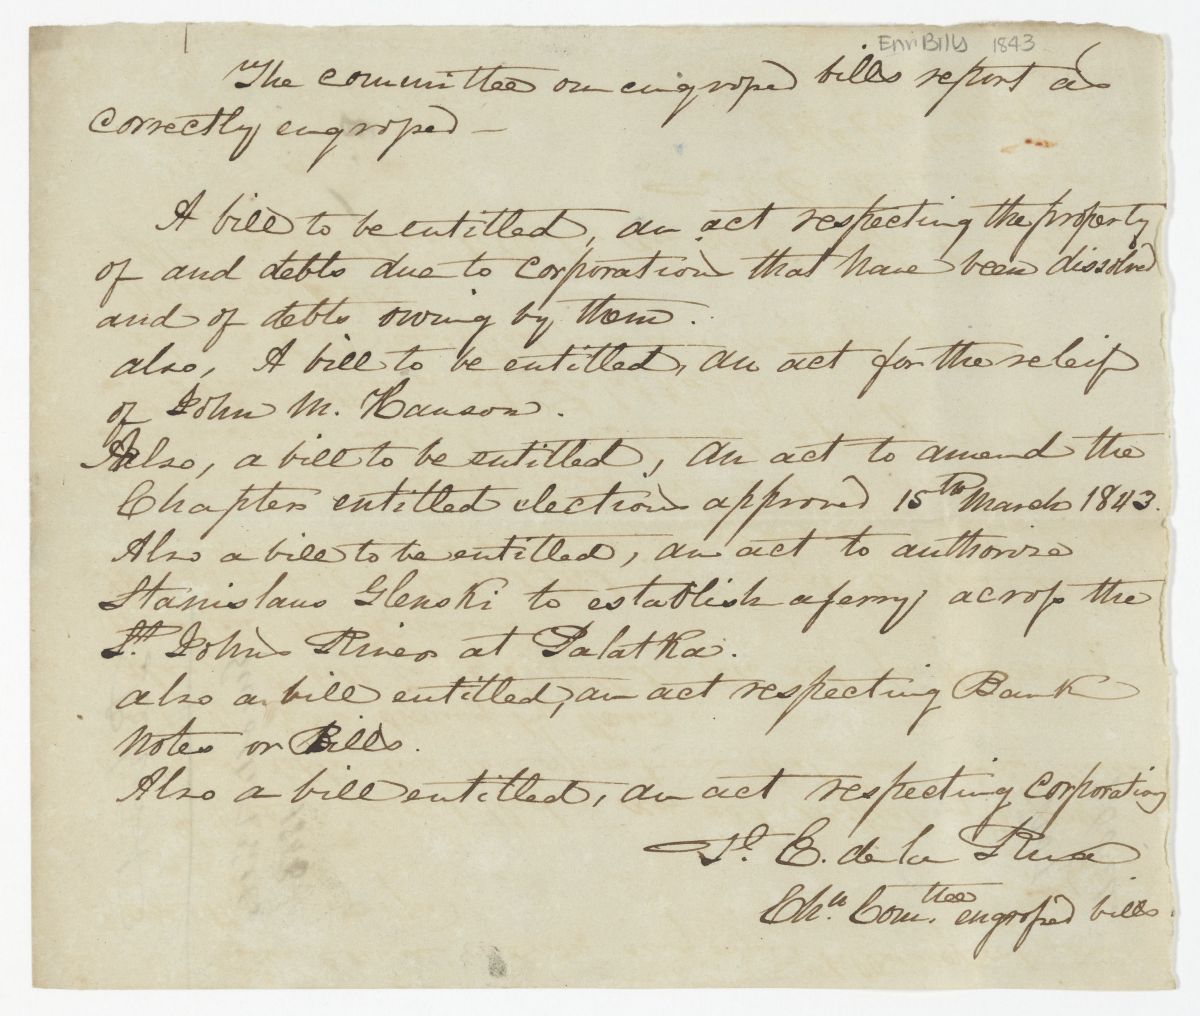 Enr Bills 1843
The committee on engrossed bills report as
correctly engrossed —
A bill to be entitled, an act respecting the property
of and debts due to corporation that have been dissolved
and of debts owing by them.
also, A bill to be entitled, an act for the releif
of John M. Hanson.
Also, a bill to be entitled, An act to amend the
Chapter entitled elections approved 15th March 1843.
Also a bill to be entitled, an act to authorize
Stanislaus Glenski to establish a ferry across the
St. Johns River at Palatka.
also a bill entitled, an act respecting Bank
Notes or Bills.
Also a bill entitled, an act respecting corporations
E. de la Rua
Chn. Comthee. engrossed bills.